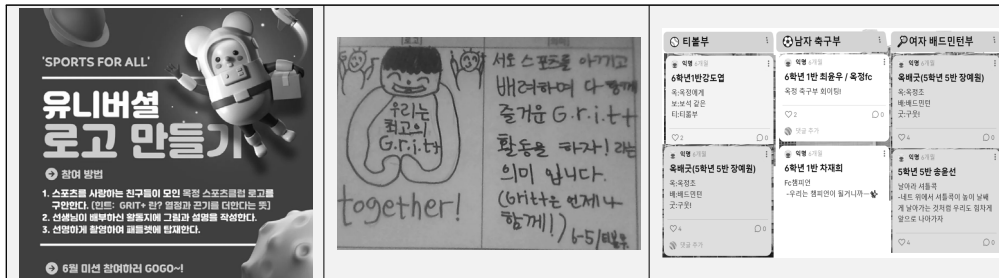 'SPORTS FOR ALL'
유니버셜
로고 만들기
참여 방법
1. 스포츠를 사랑하는 친구들이 모인 옥정 스포츠클럽 로고를
구안한다. [힌트: GRIT+ 란? 열정과 끈기를 더한다는 뜻]
2. 선생님이 배부하신 활동지에 그림과 설명을 작성한다.
3. 선명하게 촬영하여 패들렛에 탑재한다.
6월 미션 참여하러 GOGO~!
우리는
최고의
G.r.i.t+
together!
서로 스포츠를 아끼고
배려하며 다 함께
즐거운 G.r.i.t+
활동을 하자! 라는
의미 입니다.
(Grit+는 언제나
함께!)
6-5/티볼부
티볼부
익명 6개월
6학년1반강도엽
옥:옥정에게
보:보석 같은
티:티볼부
2
0
익명 6개월
옥배굿(5학년 5반 장예원)
옥:옥정조
배:배드민턴
굿:구웃!
4
0
댓글 추가
남자 축구부
익명 6개월
6학년 1반 최윤우 / 옥정fc
옥정 축구부 화이팅!
2
0
댓글 추가
익명 6개월
6학년 1반 차재희
Fc챔피언
-우리는 챔피언이 될거니까~
여자 배드민턴부
익명 6개월
옥배굿(5학년 5반 장예원)
옥:옥정조
배:배드민턴
굿:구웃!
4
0
익명 6개월
5학년 5반 송윤선
날아라 셔틀콕
-네트 위에서 셔틀콕이 높이 날쌔
게 날아가는 것처럼 우리도 힘차게
앞으로 나아가자
4
0